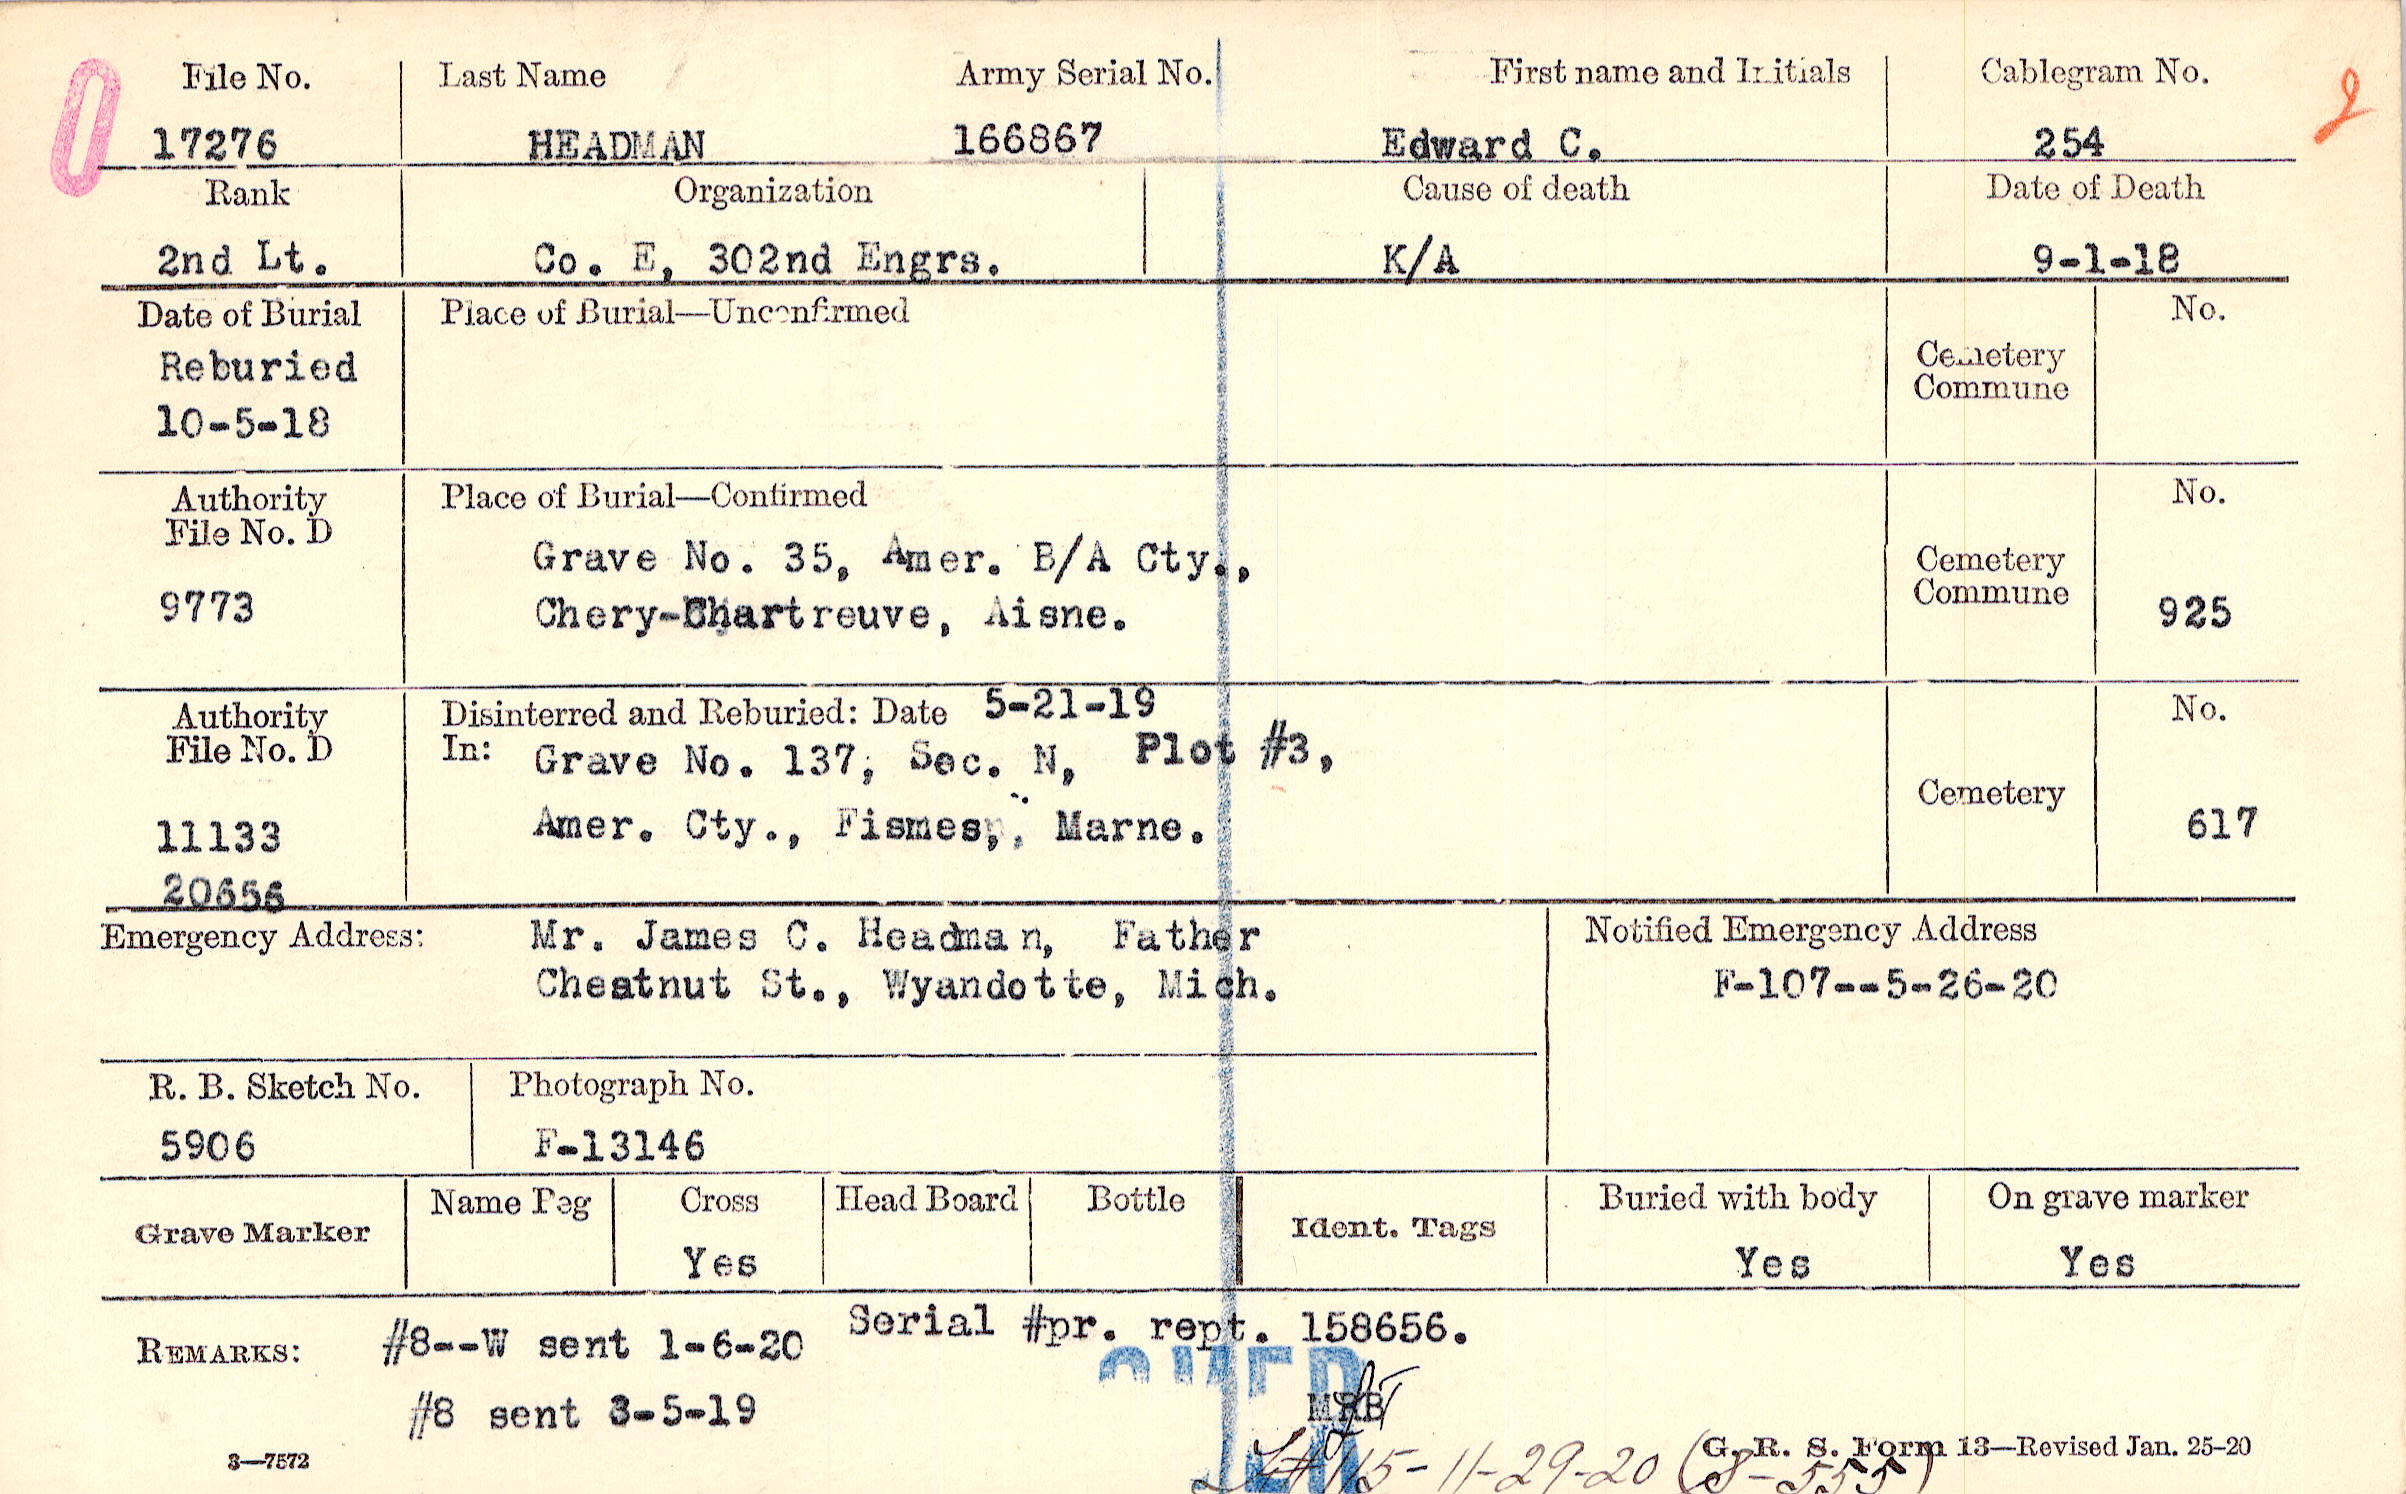 File No. Last Name Army Serial No. First name and Initials Cablegram No.
17276 HEADMAN 166867 Edward C. 254
Rank Organization Cause of death Date of Death
2nd Lt. Co. E, 302nd Engrs. K/A 9-1-18
Date of Burial Place of Burial—Unconfirmed No.
Reburied
10-5-18
Cemetery
Commune
Authority
File No. D
9773
Place of Burial—Confirmed
Grave No. 35, Amer. B/A Cty.,
Chery-Chartreuve, Aisne.
Cemetery
Commune
No.
925
Authority
File No. D
11133
20656
Disinterred and Reburied: Date 5-21-19
In: Grave No. 137, Sec. N, Plot #3,
Amer. Cty., Fismes, Marne.
Cemetery
No.
617
Emergency Address: Mr. James C. Headman, Father
Chestnut St., Wyandotte, Mich.
Notified Emergency Address
F-107--5-26-20
R. B. Sketch No. Photograph No.
5906 F-13146
Grave Marker Name Peg Cross Head Board Bottle Ident. Tags Buried with body On grave marker
Yes Yes Yes
REMARKS: #8--W sent 1-6-20 Serial #pr. rept. 158656.
OVER
#8 sent 3-5-19 MRB
3—7572
G. R. S. Form 13—Revised Jan. 25-20
115-11-29-20 (8-555)